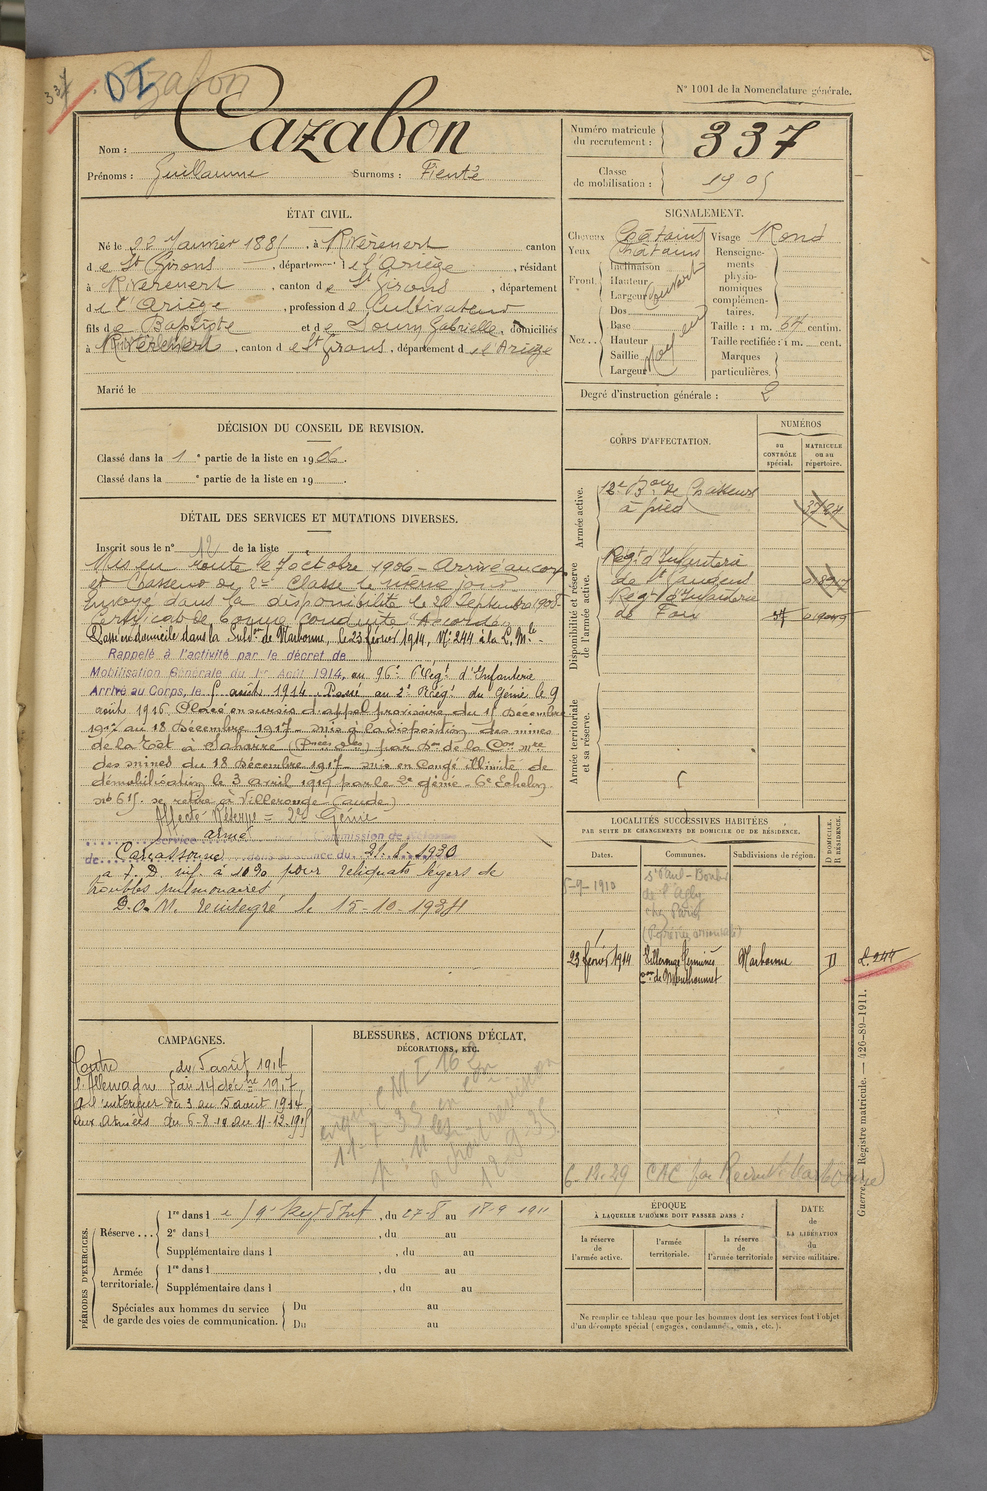 337
Cazabon
DI
N° 1001 de la Nomenclature générale.
Nom : Cazabon
Prénoms : Guillaume Surnoms :
Numéro matricule du recrutement : 337
Classe de mobilisation : 1905
ÉTAT CIVIL.
Né le 22 Janvier 1881, à Rivèrenert canton
de St Girons, département de l'Ariège, résidant
à Rivèrenert, canton de St Girons, département
de l'Ariège, profession de Cultivateur
fils de Baptiste et de Doumy Gabrielle, domiciliés
à Rivèrenert, canton de St Girons, département de l'Ariège
Marié le
SIGNALEMENT.
Cheveux Châtains Visage Rond
Yeux Châtains
Front. Inclinaison
Hauteur
Largeur Couvert
Nez .. Dos
Base
Hauteur
Saillie
Largeur Moyen
Renseignements physionomiques complémentaires.
Taille : 1 m. 67 centim.
Taille rectifiée : 1 m. cent.
Marques particulières.
Degré d'instruction générale : 2
DÉCISION DU CONSEIL DE REVISION.
Classé dans la 1e partie de la liste en 1906.
Classé dans la e partie de la liste en 19
CORPS D'AFFECTATION.
NUMÉROS
au CONTRÔLE spécial.
MATRICULE ou au répertoire.
Armée active.
12e Bon de Chasseurs
à pied
Disponibilité et réserve de l'armée active.
Regt d'Infanterie
de St Gaudens
Regt d'Infanterie
de Foix
Armée territoriale et sa réserve.
DÉTAIL DES SERVICES ET MUTATIONS DIVERSES.
Inscrit sous le n° 12 de la liste
Mis en route le 7 octobre 1906 - Arrivé au corps
et Chasseur de 2e Classe le même jour
Envoyé dans la disponibilité le 20 Septembre 1908
Certificat de bonne Conduite "Accordé"
Passé en domicile dans la Subdon de Narbonne, le 23 février 1914, N° 244 à la L. Mle -
Rappelé à l'activité par le décret de
Mobilisation Générale du 1er Août 1914, au 96e Régt d'Infanterie
Arrivé au Corps, le 5 août 1914. Passé au 2e Régt du Génie le 9
août 1916. Placé en sursis d'appel provisoire du 15 Décembre
1917 au 18 Décembre 1917 - mis à la disposition des mines
de la Têt à Sahorre (Pnées Oles) par Don de la Con mre
des mines du 18 Décembre 1917 - mis en Congé illimité de
démobilisation le 3 avril 1919 par le 2e génie - 6e Echelon
n° 615. se retire à Villerouge (aude)
Affecté Réserve = 2e Génie
service armé Commission de
de Carcassonne dans sa séance du 21.8.1930
à P. D. inf. à 10% pour reliquats légers de
troubles pulmonaires
D.O.M. réintégré le 15-10-1934
LOCALITÉS SUCCESSIVES HABITÉES
PAR SUITE DE CHANGEMENTS DE DOMICILE OU DE RÉSIDENCE.
Dates. Communes. Subdivisions de région. D DOMICILE. R RÉSIDENCE.
5-9-1910 St Paul
de l'Agly
chez Paris
23 février 1914 Villerouge Termenès Narbonne D
con de Mouthoumet
244
6-12-29
CAMPAGNES.
Contre du 5 août 1914
l'Allemagne au 14 décbre 1917
à l'intérieur du 3 au 5 août 1914
aux armées du 6-8-14 au 11-12-1917
BLESSURES, ACTIONS D'ÉCLAT,
DÉCORATIONS, ETC.
11-7-35
PÉRIODES D'EXERCICES.
Réserve ... 1re dans le Regt d'Inf, du 27-8 au 18-9 1911
2e dans l , du au
Supplémentaire dans l , du au
Armée territoriale. 1re dans l , du au
Supplémentaire dans l , du au
Spéciales aux hommes du service de garde des voies de communication. Du au
Du au
ÉPOQUE
À LAQUELLE L'HOMME DOIT PASSER DANS :
la réserve de l'armée active.
l'armée territoriale.
la réserve de l'armée territoriale
DATE de LA LIBÉRATION du service militaire.
Ne remplir ce tableau que pour les hommes dont les services font l'objet
d'un décompte spécial (engagés, condamnés, omis, etc.).
Guerre. Registre matricule. — 426-89-1911.